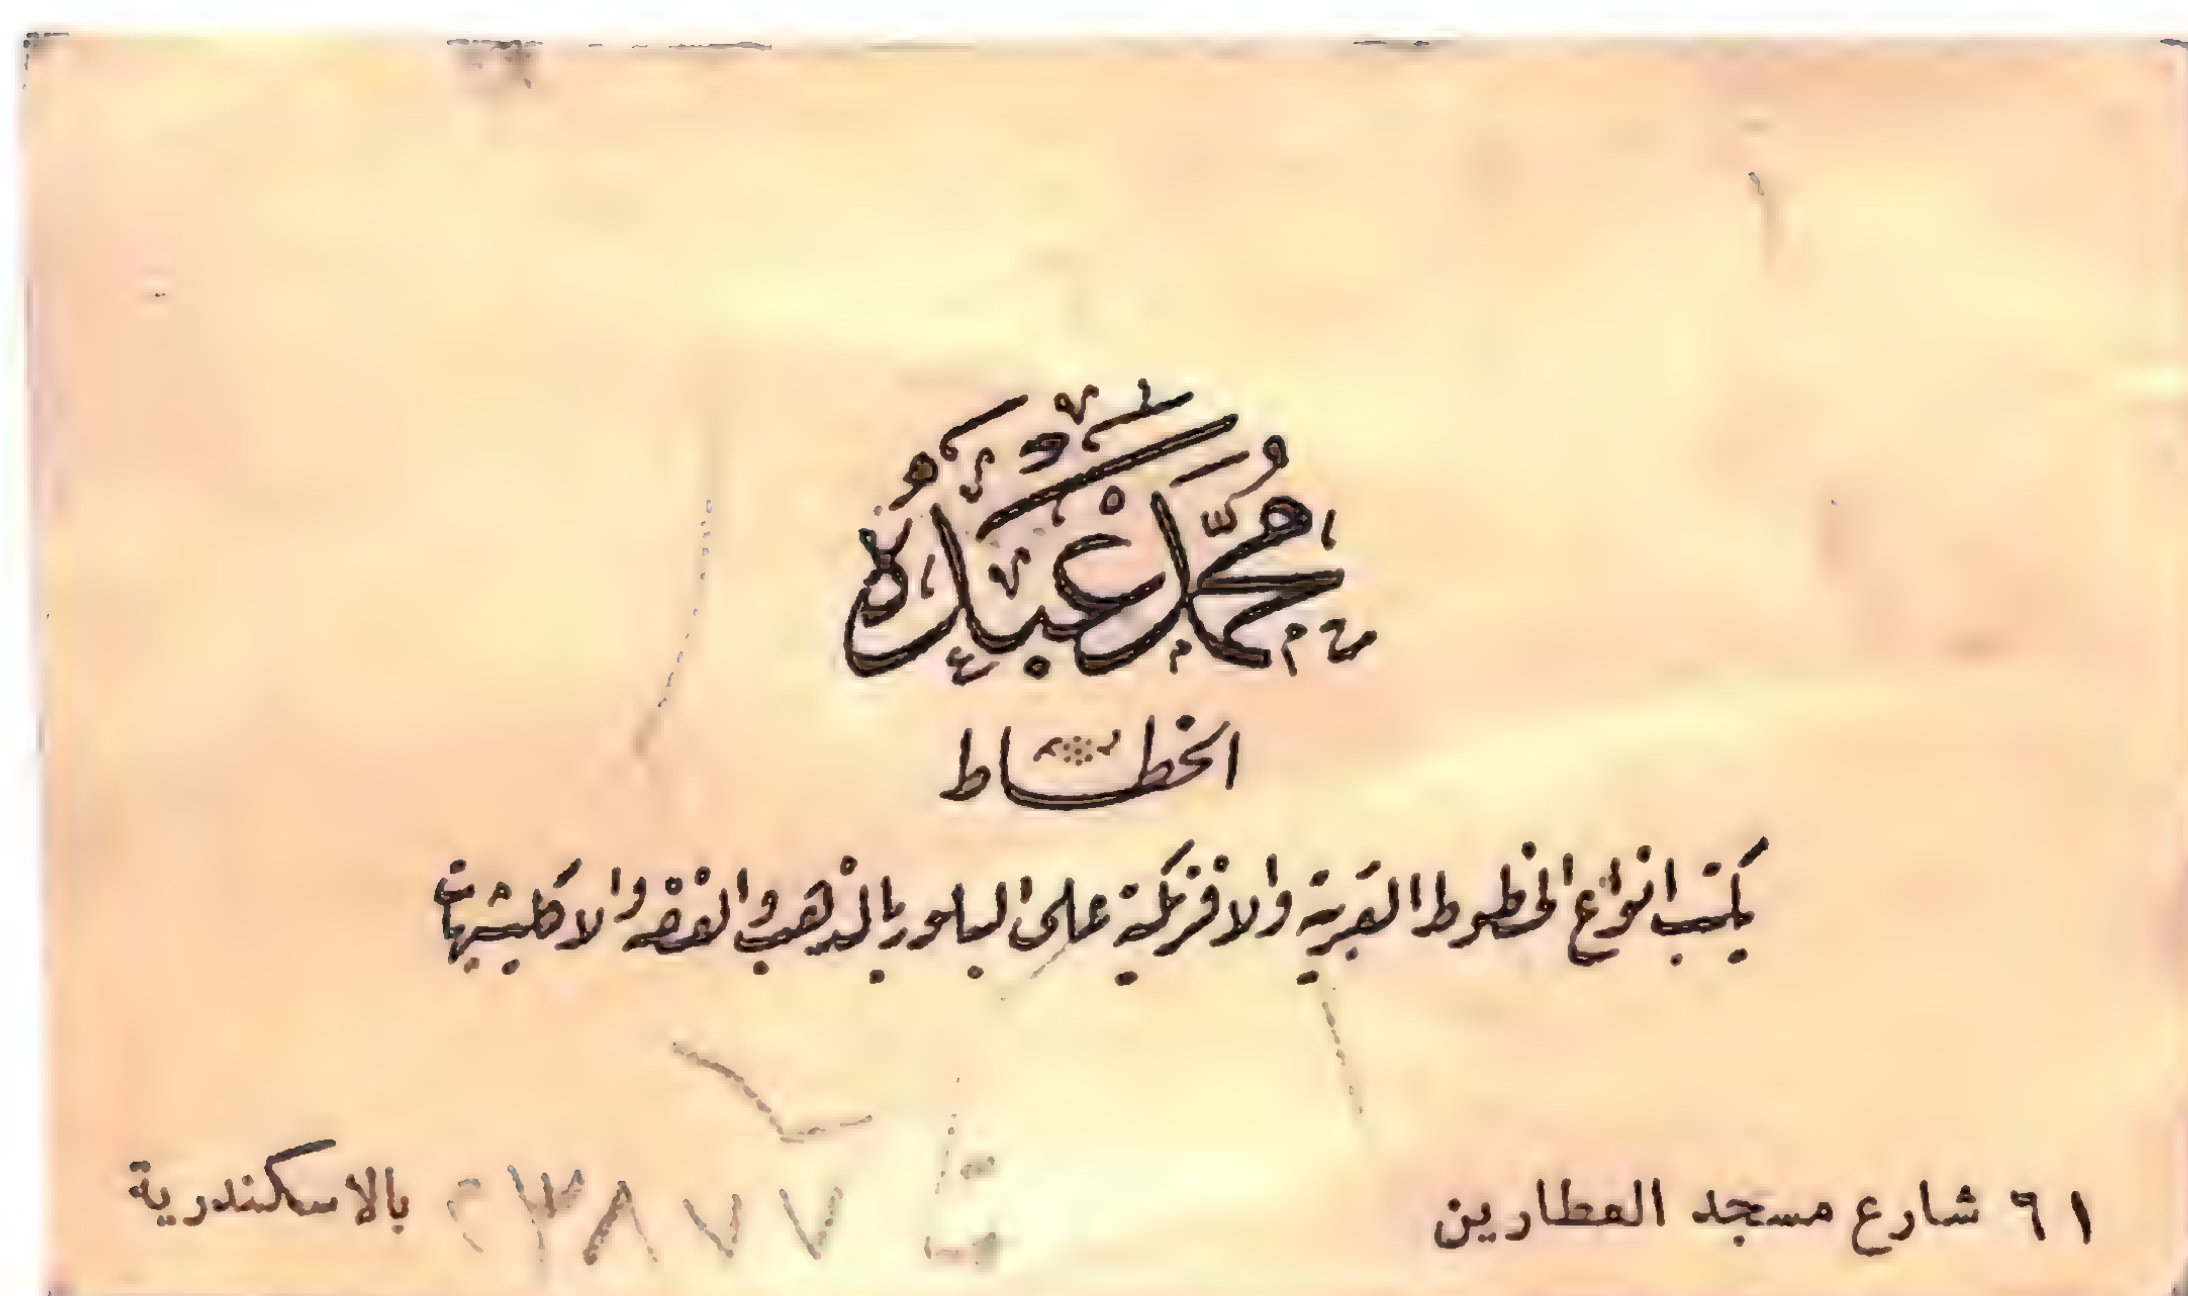 محمد عبده
الخطاط
يكتب انواع الخطوط العربية والافرنكية على البلور بالذهب والفضه والاكلیشيهات
٦١ شارع مسجد العطارين
ت ٤٣٨٧٧ بالاسكندرية